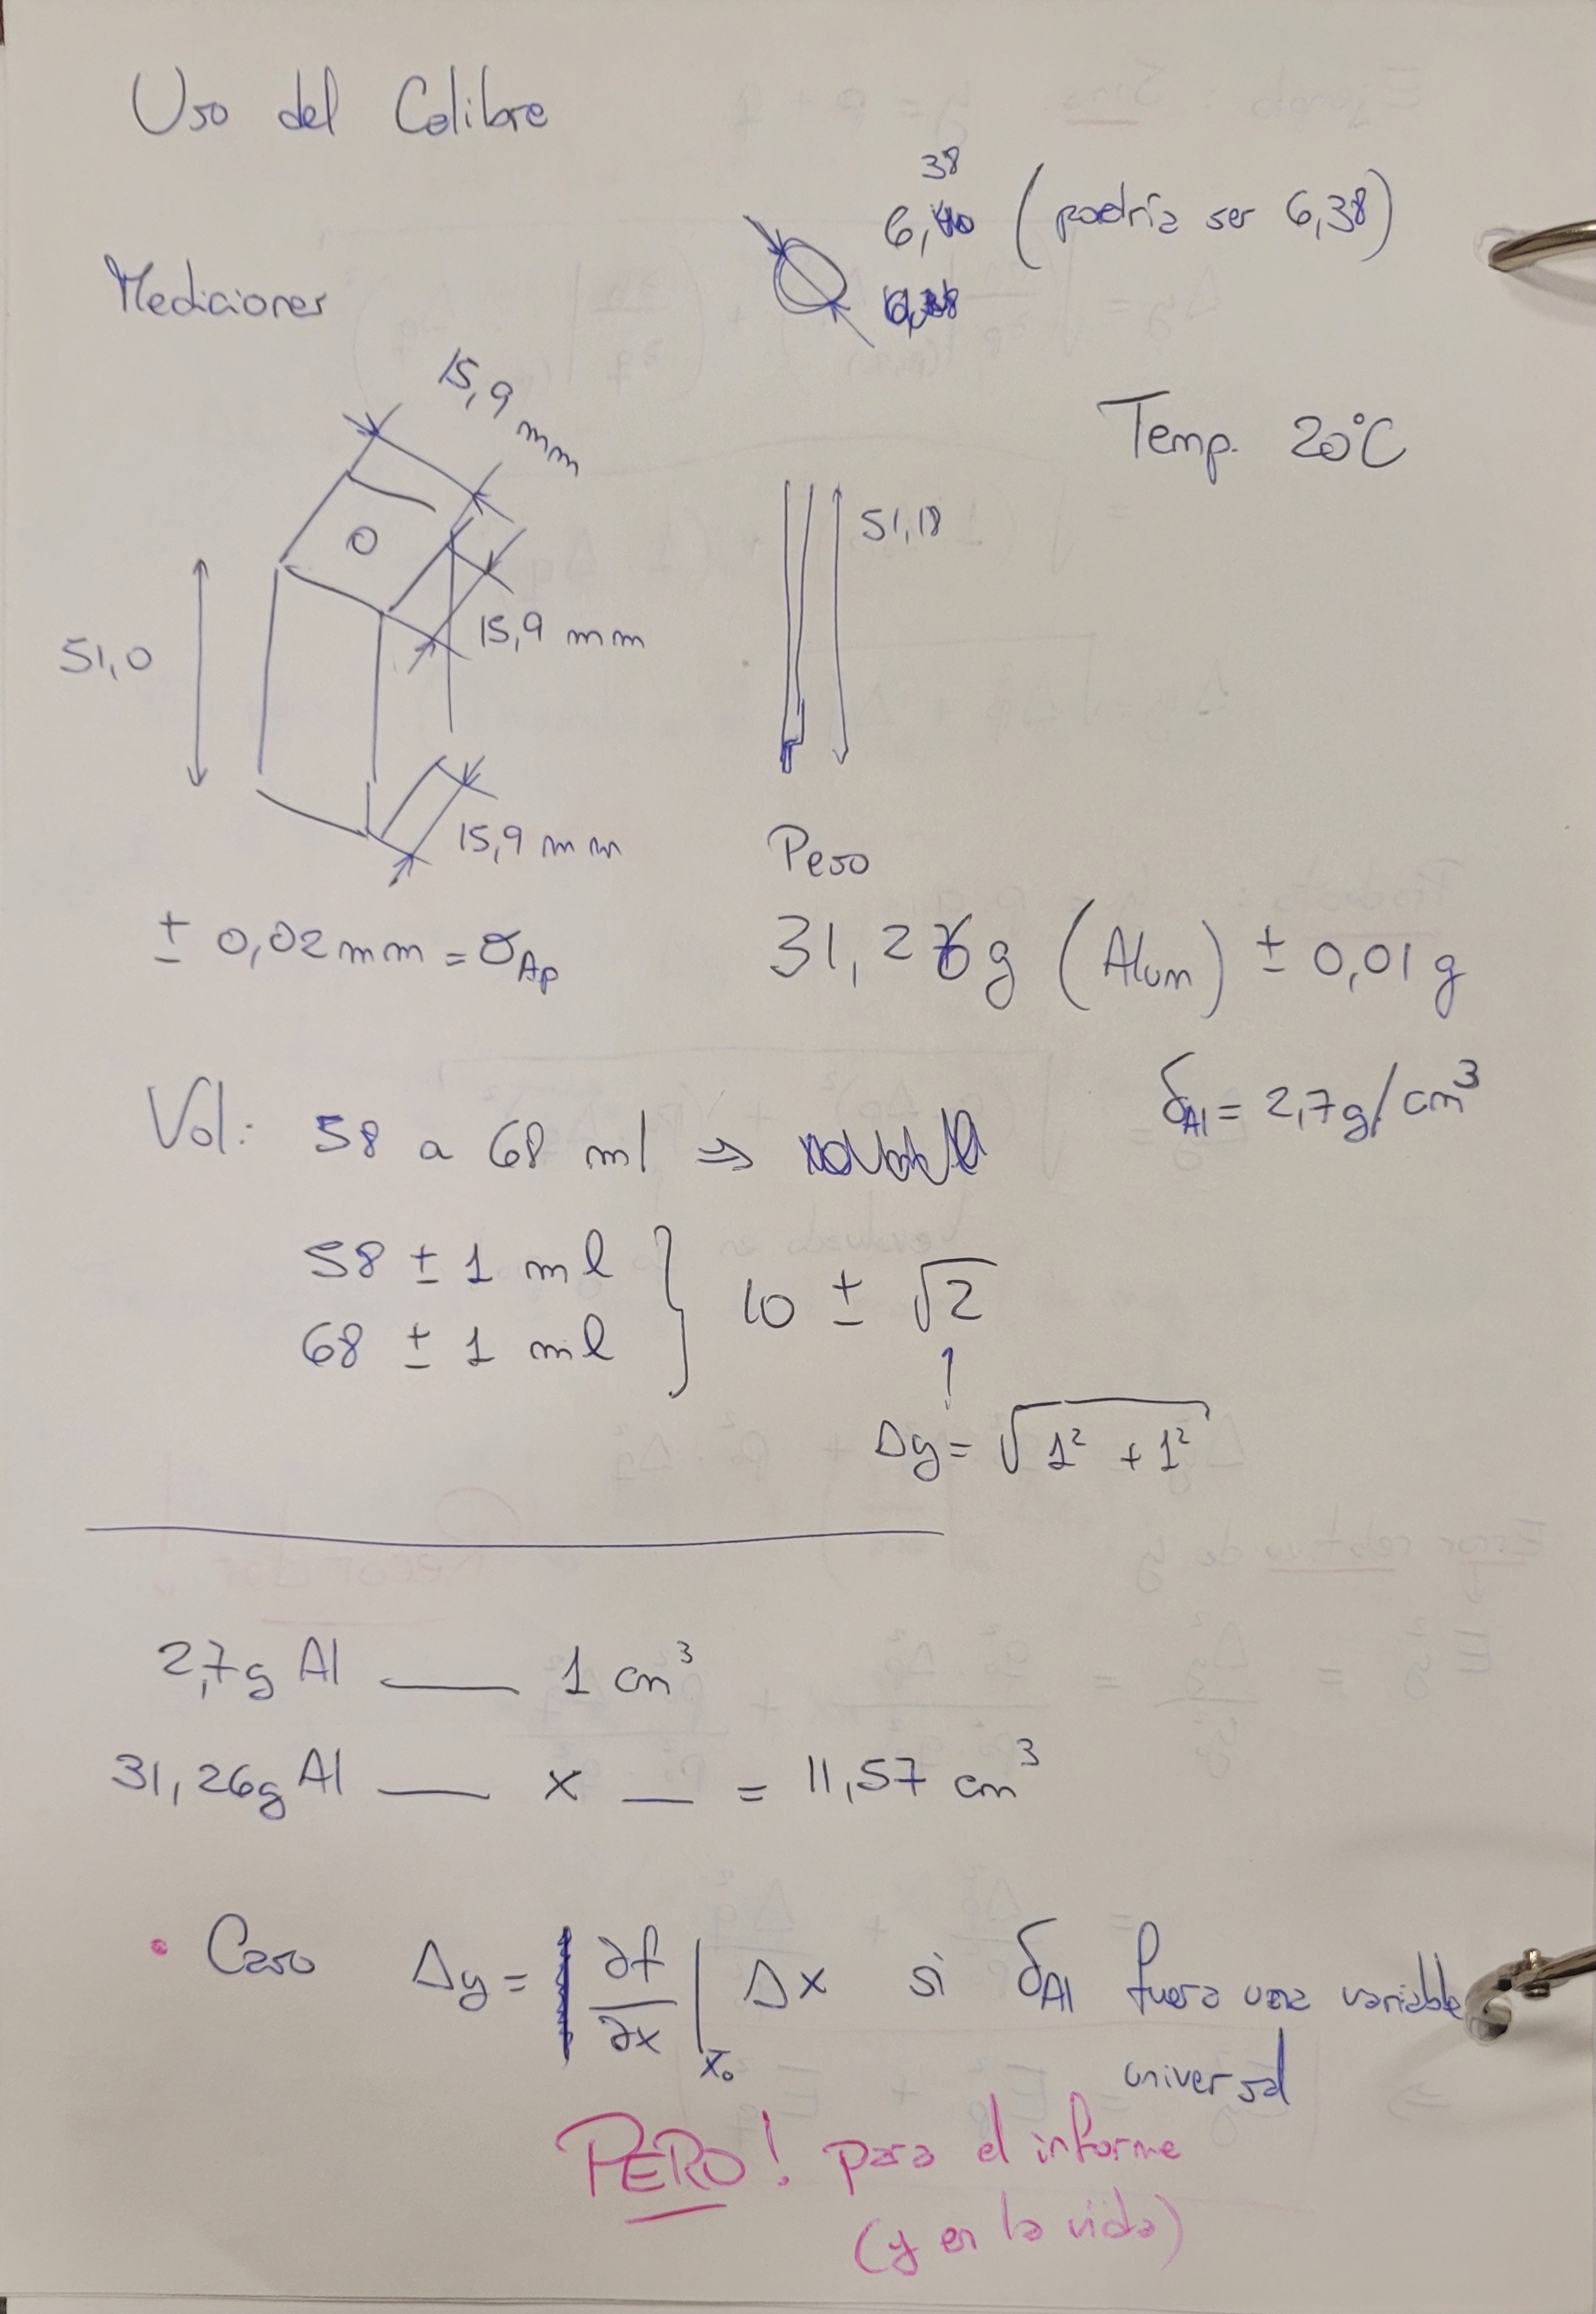 Uso del Calibre
38
6,40 (podría ser 6,38)
Mediciones
15,9 mm
Temp. 20°C
51,18
15,9 mm
51,0
15,9 mm
± 0,02 mm = σAp
Peso
31,26 g (Alum) ± 0,01 g
δAl = 2,7 g/cm³
Vol: 58 a 68 ml ⇒
58 ± 1 ml
68 ± 1 ml } 10 ± √2
Δy = √(1² + 1²)
2,7g Al — 1 cm³
31,26g Al — x — = 11,57 cm³
• Caso Δy = |∂f/∂x|x₀ Δx si δAl fuera una variable
universal
PERO! para el informe
(y en la vida)